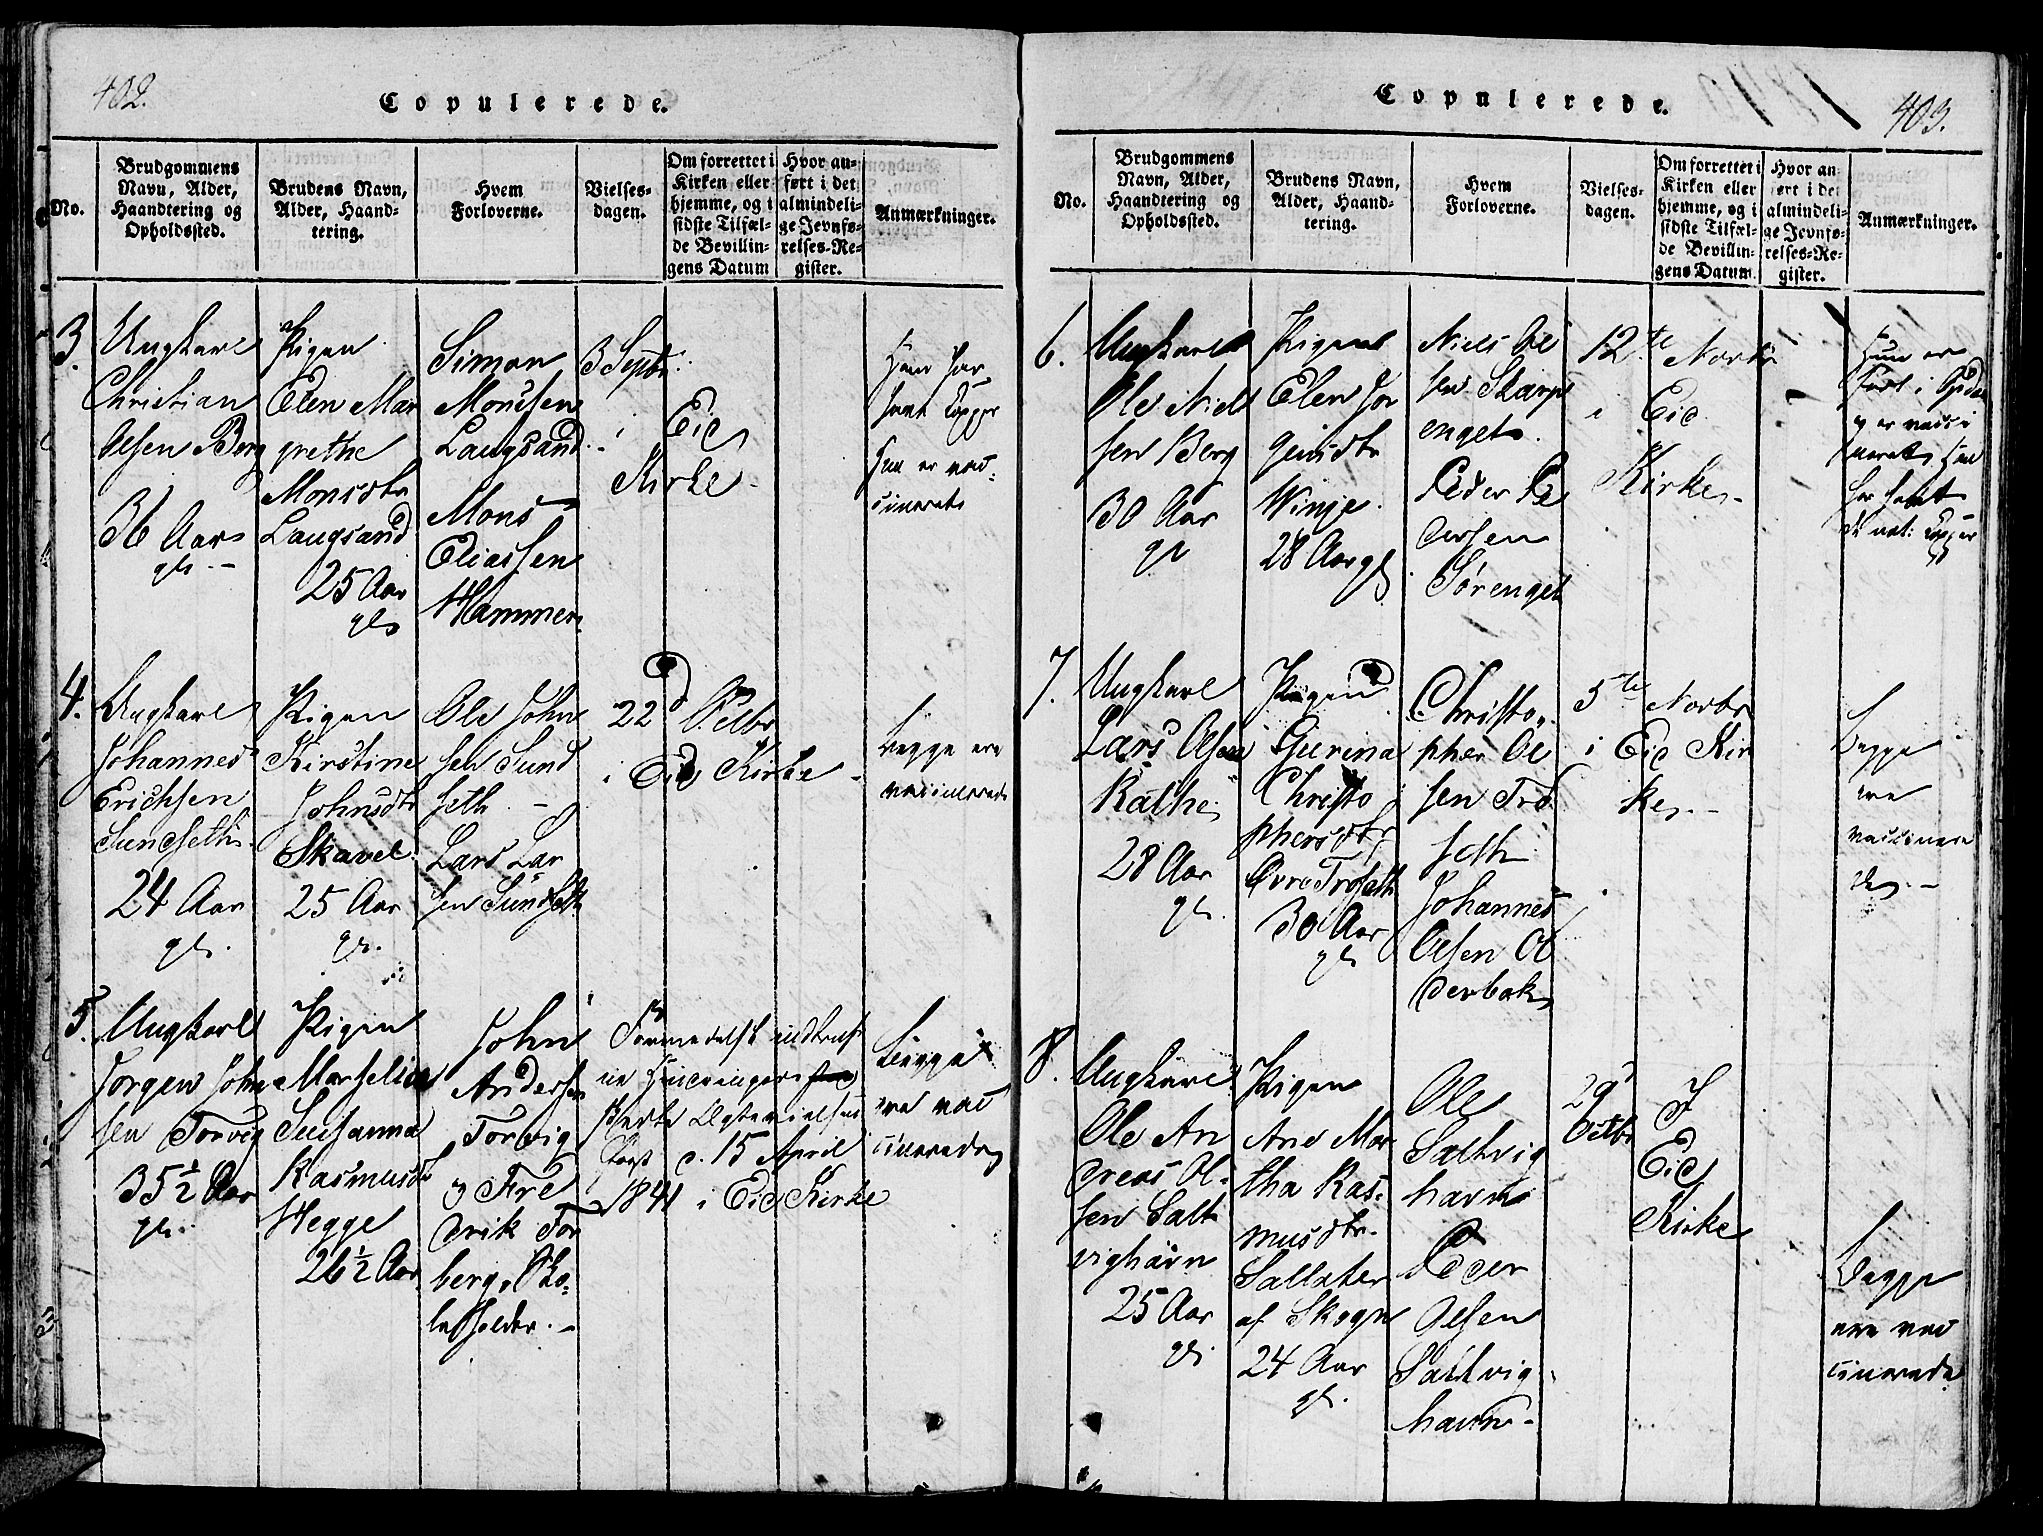 402.
Copulerede.
No.
Brudgommens
Navn, Alder,
Haandtering og
Opholdssted.
Brudens Navn,
Alder, Haand-
tering.
Hvem
Forloverne.
Vielses-
dagen.
Om forrettet i
Kirken eller
hjemme, og i
sidste Tilfæl-
de Bevillin-
gens Datum
Hvor an-
ført i det
almindeli-
ge Jevnfø-
relses-Re-
gister.
Anmærkninger.
3.
Ungkarl
Christian
Olsen Berg
36 Aar
gl.
Pigen
Elen Mar
grethe
Monsdtr
Laugsand
25 Aar
gl.
Simon
Monssen
Laugsand.
Mons
Eliassen
Hammer
3 Septbr.
i Eid
Kirke
Han har
havt Kopper
Hun er vac-
cineret
4.
Ungkarl
Johannes
Erichsen
Sundseth
24 Aar
gl.
Pigen
Kirstine
Johnsdtr
Skavel
25 Aar
gl.
Ole John
sen Sund
seth
Lars Lar
sen Sundseth
22d Octbr
i Eid Kirke
Begge ere
vaccinerede
5.
Ungkarl
Jørgen John
sen Torvig
35½ Aar
gl.
Pigen
Marselia
Susanna
Rasmusdr
Hegge
26½ Aar
John
Andersen
Torvig
og Fre
drik Tor
berg, Sko-
leholder.
Formedelst indtruf
ne Hindringer
skede Ægtevielsen
først d. 15 April
1841 i Eid Kirke
Begge
ere vac
cinerede
403.
Copulerede.
No.
Brudgommens
Navn, Alder,
Haandtering og
Opholdssted.
Brudens Navn,
Alder, Haand-
tering.
Hvem
Forloverne.
Vielses-
dagen.
Om forrettet i
Kirken eller
hjemme, og i
sidste Tilfæl-
de Bevillin-
gens Datum.
Hvor an
ført i det
almindeli-
ge Jevnfø-
relses-Re-
gister.
Anmærkninger.
6.
Ungkarl
Ole Niel
sen Berg
30 Aar
gl
Pigen
Elen Jør
ginsdtr
Winje
28 Aar gl
Niels Ol
sen Skarps
enget.
Peder Pe
dersen
Sørenget
12te Novbr
i Eid
Kirke
Hun er
født i
og er vacci
neret, Han
har havt
de nat: Kopper
7.
Ungkarl
Lars Olsen
Rathe
28 Aar
gl.
Pigen
Gurina
Christo
phersdtr
Øvre Troseth
30 Aar
gl
Christo-
pher Ol
sen Tro
seth
Johannes
Olsen Ol
derbak
5te Novbr
i Eid Kir
ke
Begge
ere
vaccinere
de
8.
Ungkarl
Ole An
dreas Ol-
sen Salt
vighavn
25 Aar
gl.
Pigen
Ane Mar
tha Ras-
musdtr.
Salleter
af Skogn
24 Aar
gl.
Ole
Saltvig
havn
Peder
Olsen
Saltvig-
havn
29
Octbr
I
Eid
Kirke
Begge
ere vac
cinerede